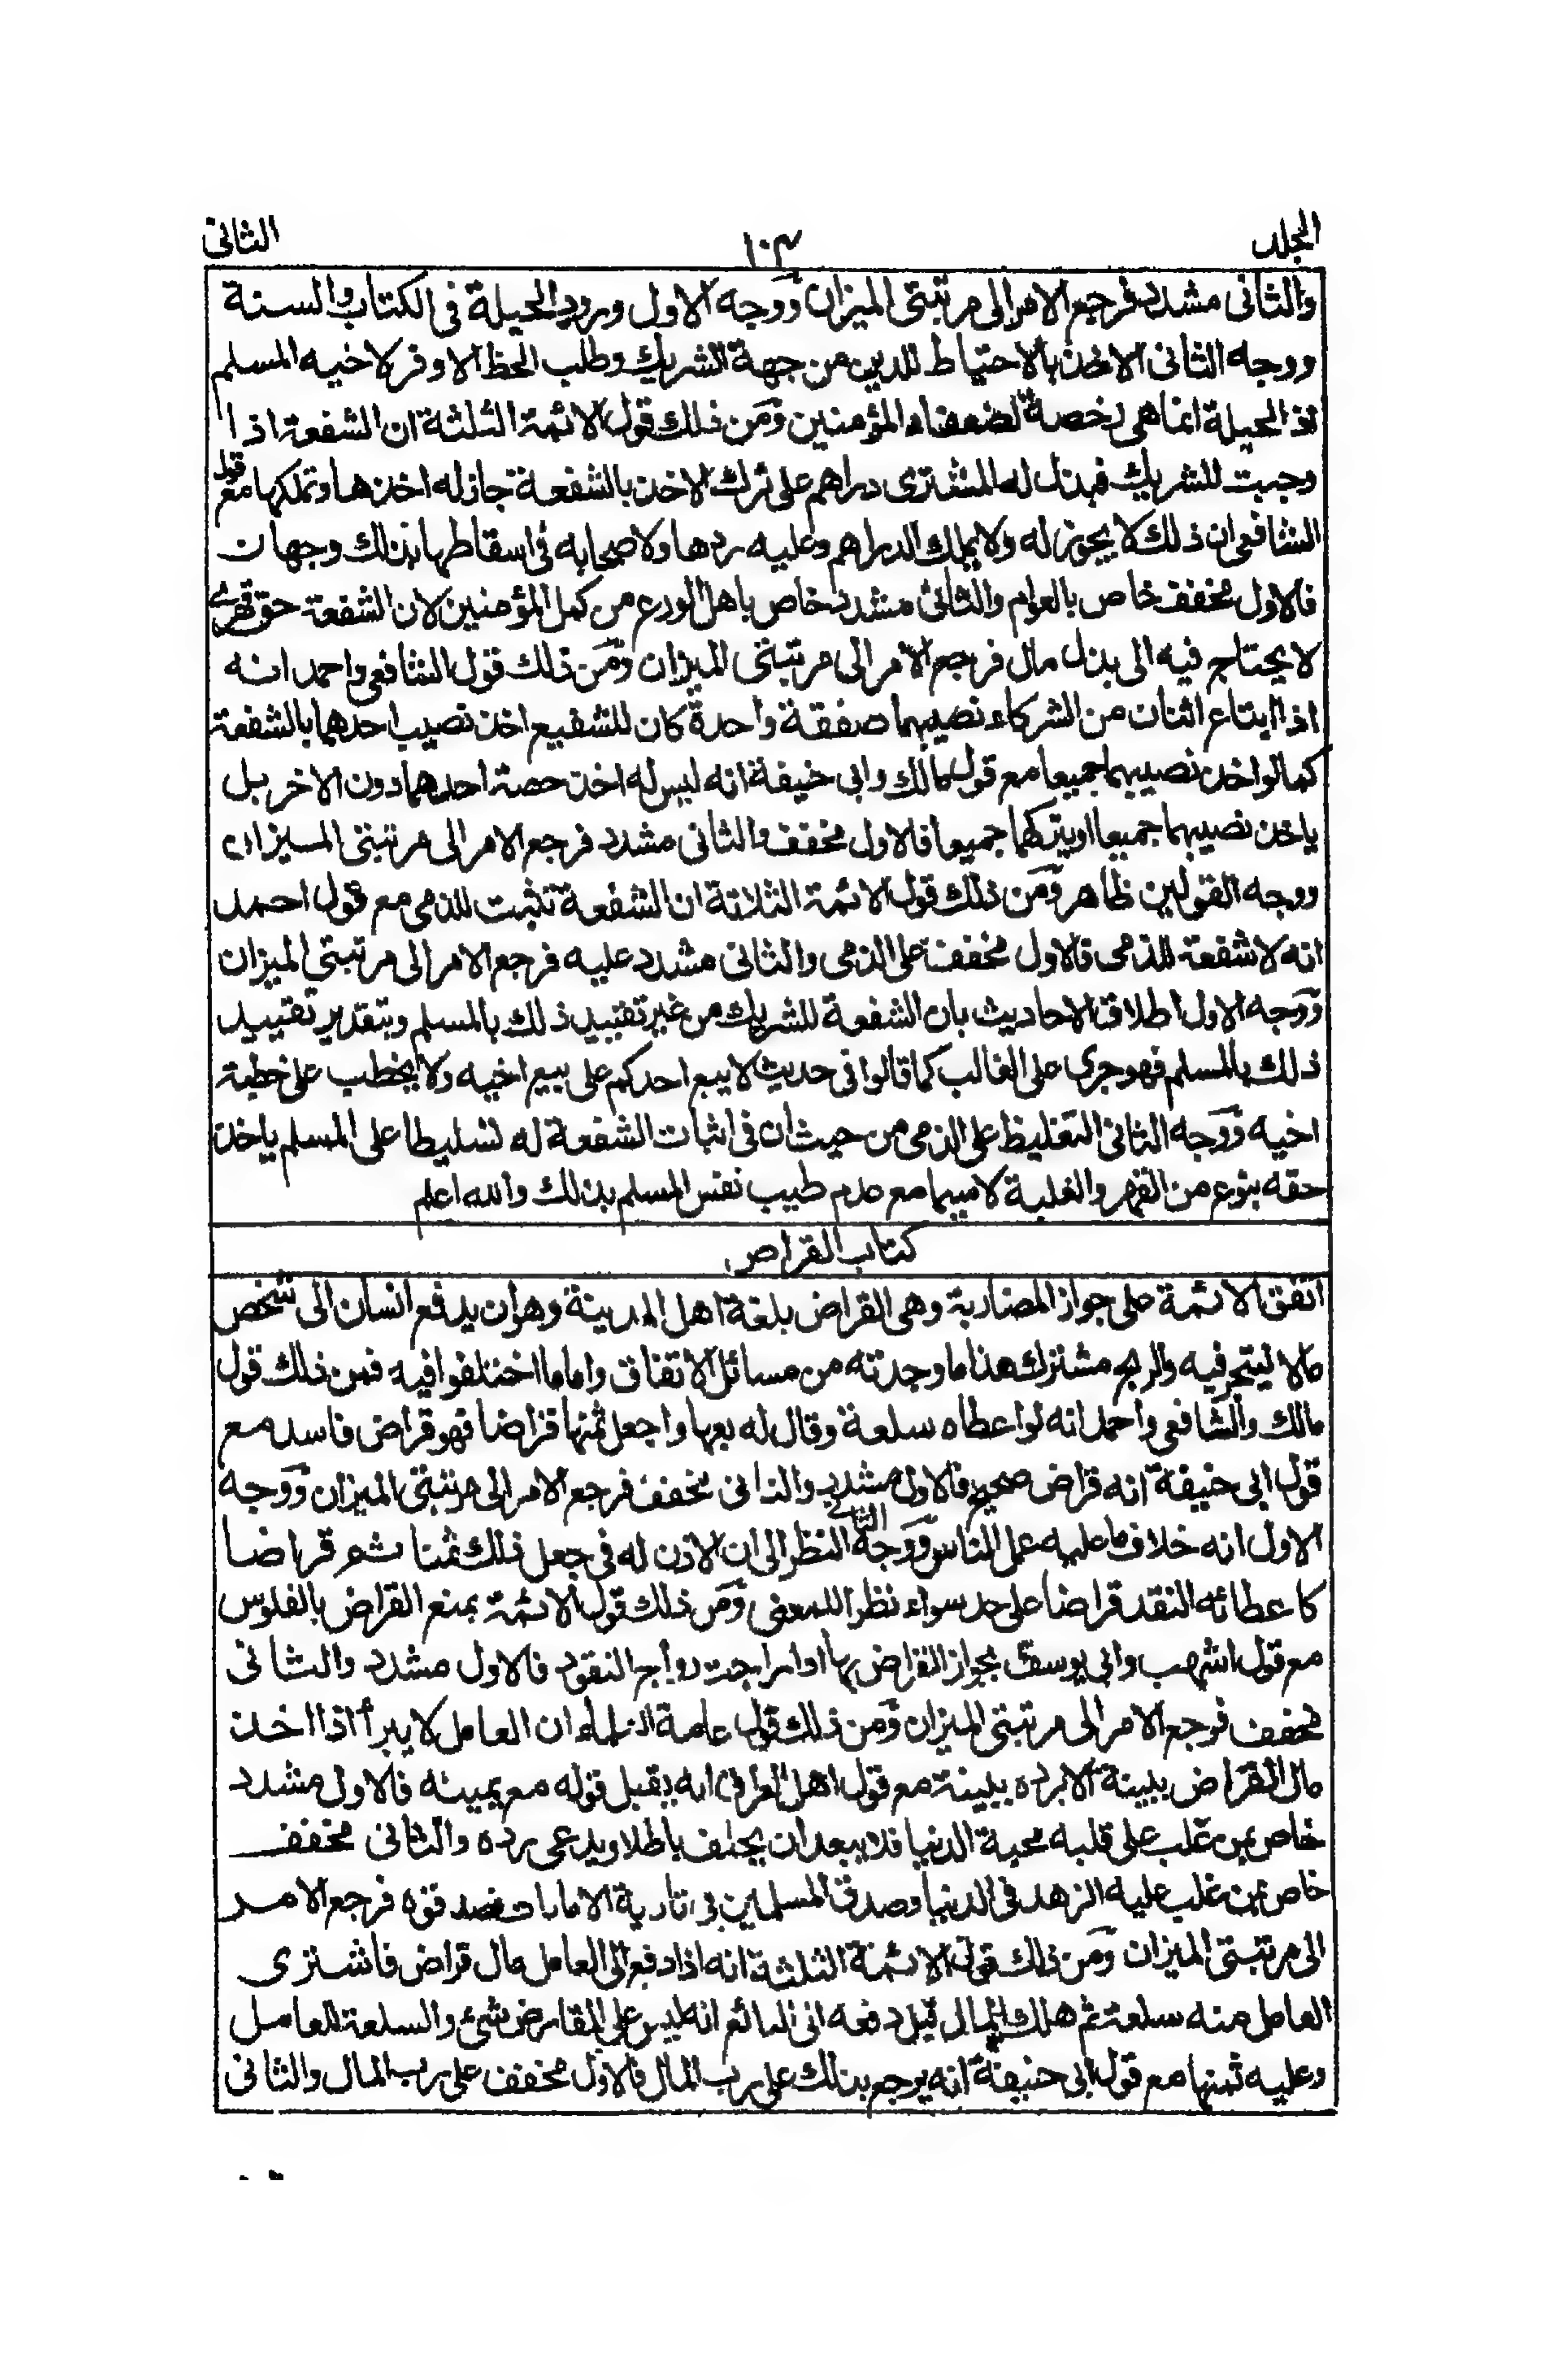 المجلد ١٠٣ الثانى
والثانى مشدد فرجع الامر الى مرتبتى الميزان ووجه الاول ورود الحيلة فى الكتاب والسنة
ووجه الثانى الاخذ بالاحتياط للدين من جهة الشريك وطلب الحظ الاوفر لاخيه المسلم
اذ الحيلة انما هى رخصة لضعفاء المؤمنين ومن ذلك قول الائمة الثلثة ان الشفعة اذا
وجبت للشريك فبذل له المشترى دراهم على ترك الاخذ بالشفعة جاز له اخذها وتملكها مع قول
الشافعى ان ذلك لا يجوز له ولا يملك الدراهم وعليه ردها ولاصحابه فى اسقاطها بذلك وجهان
فالاول مخفف خاص بالعوام والثانى مشدد خاص باهل الورع من كمل المؤمنين لان الشفعة حق قهرى
لا يحتاج فيه الى بذل مال فرجع الامر الى مرتبتى الميزان ومن ذلك قول الشافعى واحمد انه
اذا ابتاع اثنان من الشركاء نصيبهما صفقة واحدة كان للشفيع اخذ نصيب احدهما بالشفعة
كما لو اخذ نصيبهما جميعا مع قول مالك وابى حنيفة انه ليس له اخذ حصة احدهما دون الاخر بل
ياخذ نصيبهما جميعا او يتركهما جميعا فالاول مخفف والثانى مشدد فرجع الامر الى مرتبتى الميزان
ووجه القولين ظاهر ومن ذلك قول الائمة الثلاثة ان الشفعة تثبت للذمى مع قول احمد
انه لا شفعة للذمى فالاول مخفف على الذمى والثانى مشدد عليه فرجع الامر الى مرتبتى الميزان
ووجه الاول اطلاق الاحاديث بان الشفعة للشريك من غير تقييد ذلك بالمسلم وبتقدير تقييد
ذلك بالمسلم فهو جرى على الغالب كما قالوا فى حديث لا يبع احدكم على بيع اخيه ولا يخطب على خطبة
اخيه ووجه الثانى التغليظ على الذمى من حيث ان فى اثبات الشفعة له تسليطا على المسلم ياخذ
حقه بنوع من القهر والغلبة لا سيما مع عدم طيب نفس المسلم بذلك والله اعلم
كتاب القراض
اتفق الائمة على جواز المضاربة وهى القراض بلغة اهل المدينة وهو ان يدفع انسان الى شخص
مالا ليتجر فيه والربح مشترك هذا ما وجدته من مسائل الاتفاق واما ما اختلفوا فيه فمن ذلك قول
مالك والشافعى واحمد انه لو اعطاه سلعة وقال له بعها واجعل ثمنها قراضا فهو قراض فاسد مع
قول ابى حنيفة انه قراض صحيح فالاول مشدد والثانى مخفف فرجع الامر الى مرتبتى الميزان ووجه
الاول انه خلاف ما عليه عمل الناس ووجه الثانى النظر الى ان الاذن له فى جعل ذلك ثمنا ثم قراضا
كاعطائه النقد قراضا على حد سواء نظرا للمعنى ومن ذلك قول الائمة بمنع القراض بالفلوس
مع قول اشهب وابى يوسف بجواز القراض بها اذا راجت رواج النقود فالاول مشدد والثانى
مخفف فرجع الامر الى مرتبتى الميزان ومن ذلك قول عامة العلماء ان العامل لا يبرأ اذا اخذ
مال القراض ببينة الا برده ببينة مع قول اهل العراق انه يقبل قوله مع يمينه فالاول مشدد
خاص بمن غلب على قلبه محبة الدنيا فلا يبعد ان يحلف باطلا ويدعى رده والثانى مخفف
خاص بمن غلب عليه الزهد فى الدنيا وصدق المسلمين فى تادية الامانات فرجع الامر
الى مرتبتى الميزان ومن ذلك قول الائمة الثلثة انه اذا دفع الى العامل مال قراض فاشترى
العامل منه سلعة ثم هلك المال قبل دفعه الى البائع انه ليس على المقارض شئ والسلعة للعامل
وعليه ثمنها مع قول ابى حنيفة انه يرجع بذلك على رب المال فالاول مخفف على رب المال والثانى